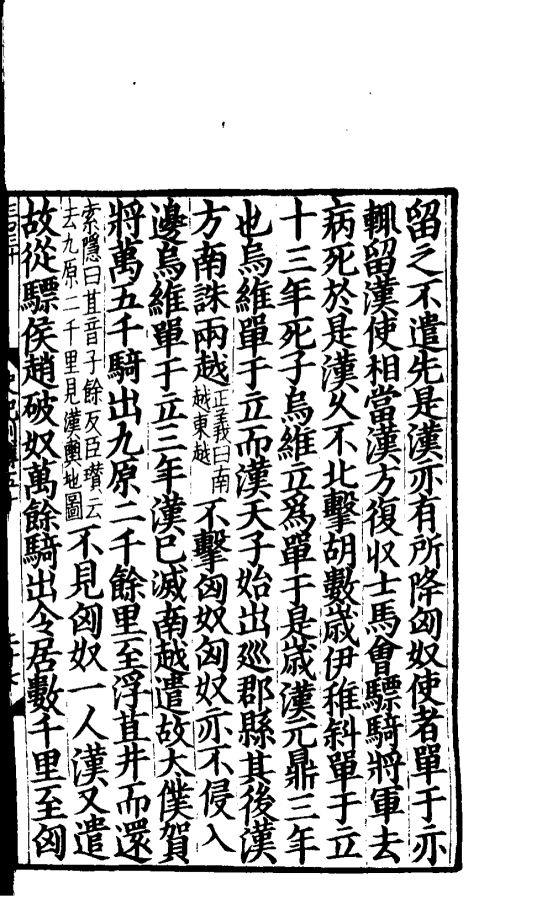 留之不遣先是漢亦有所降匈奴使者單于亦
輒留漢使相當漢方復収士馬會驃騎將軍去
病死於是漢乆不北擊胡數歲伊稚斜單于立
十三年死子烏維立爲單于是歲漢元鼎三年
也烏維單于立而漢天子始出廵郡縣其後漢
方南誅兩越正義曰南越東越不擊匈奴匈奴亦不侵入
邊烏維單于立三年漢已滅南越遣故太僕賀
將萬五千騎出九原二千餘里至浮苴井而還
索隱曰苴音子餘反臣瓚云去九原二千里見漢輿地圖不見匈奴一人漢又遣
故從驃侯趙破奴萬餘騎出令居數千里至匈